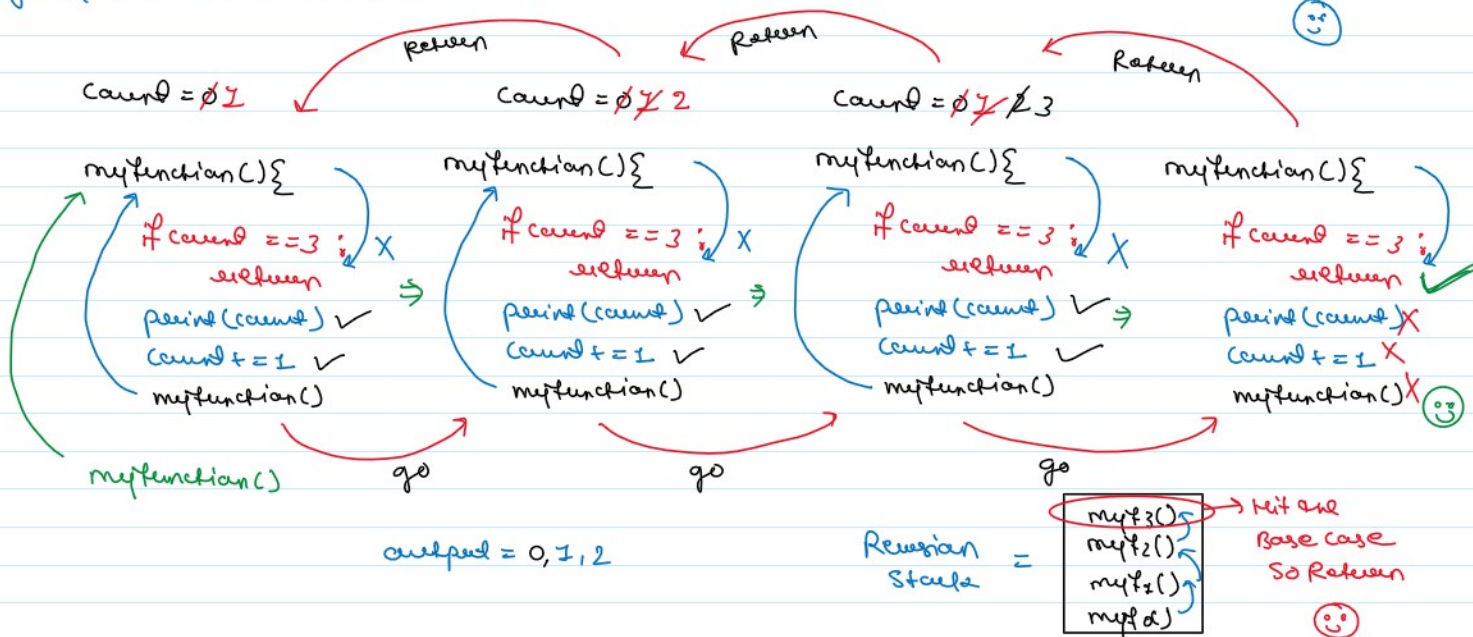 Return
Return
Return
Count = 0 1
Count = 0 1 2
Count = 0 1 2 3
myfunction(){
if count == 3 :
return
print(count)
count += 1
myfunction()
myfunction(){
if count == 3 :
return
print(count)
count += 1
myfunction()
myfunction(){
if count == 3 :
return
print(count)
count += 1
myfunction()
myfunction(){
if count == 3 :
return
print(count)
count += 1
myfunction()
myfunction()
go
go
go
output = 0, 1, 2
Recursion
Stack
=
myf3()
myf2()
myf1()
myf()
Hit the
Base case
So Return